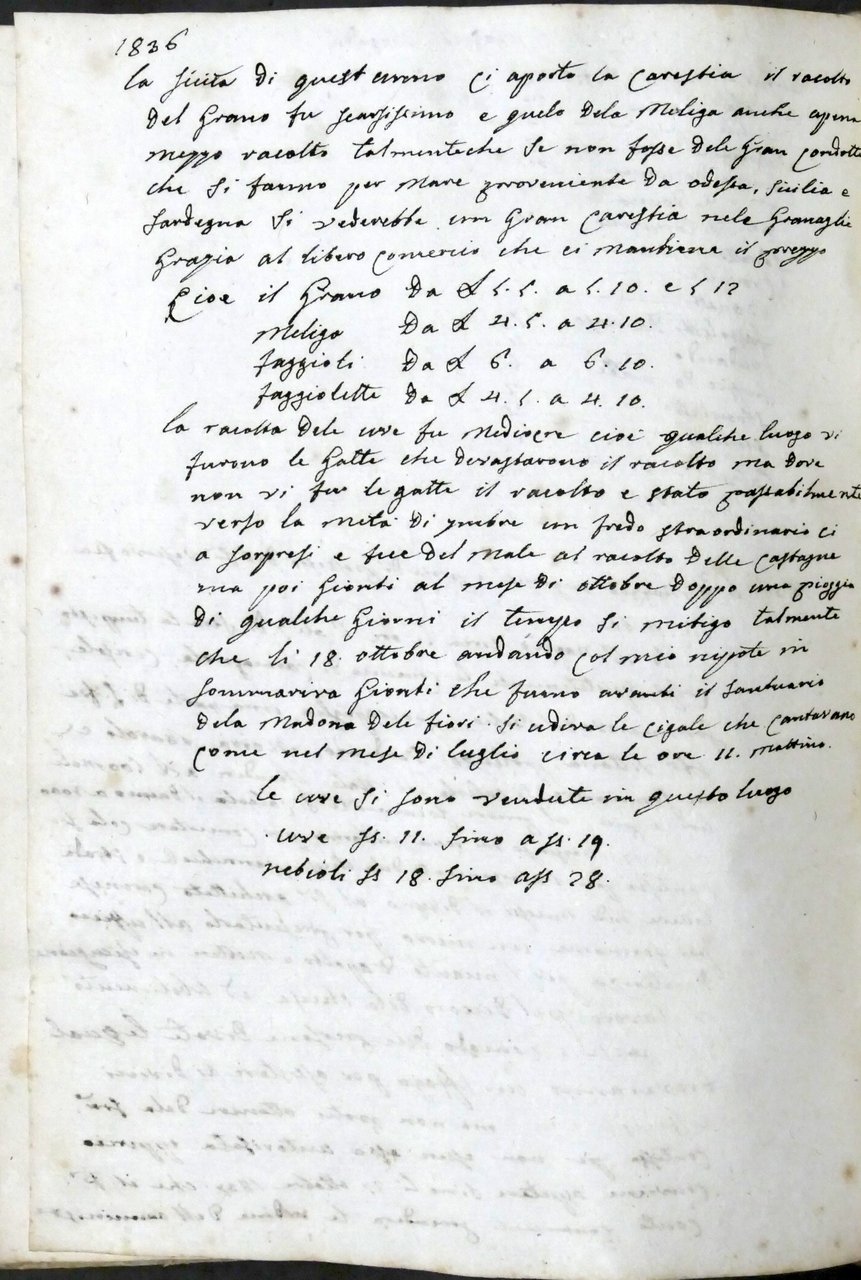 1836
la sicita di quest anno ci aporto la carestia il racolto
del Grano fu scarsissimo e quelo dela Meliga anche apena
mezzo racolto talmenteche se non fosse dele Gran condotte
che si fanno per Mare proveniente da odessa, sicilia e
sardegna si vederebbe un Gran carestia nele Granaglie
Grazia al libero comercio che ci mantiene il prezzo
Cioe il Grano da £ 5. 5. a 5. 10. e 5 12
Meliga da £ 4. 5. a 4. 10.
faggioli da £ 6. a 6. 10.
faggiolette da £ 4. 5. a 4. 10.
la racolta dele uve fu Mediocre cioè qualche luogo vi
furono le Gatte che devastarono il racolto ma dove
non vi fu le gatte il racolto e stato passabilmente
verso la metà di 7mbre un fredo straordinario ci
a sorpresi e fece del Male al racolto delle castagne
ma poi Gionti al mese di ottobre doppo una pioggia
di qualche Giorni il tempo si mitigo talmente
che li 18. ottobre andando col mio nipote in
sommariva Gionti che fumo avanti il santuario
dela Madona dele fiori si udiva le cigale che cantavano
come nel mese di luglio circa le ore 11. mattino.
le uve si sono vendute in questo luogo
uve ss. 11. sino a ss. 19.
nebioli ss 18. sino a ss 28.